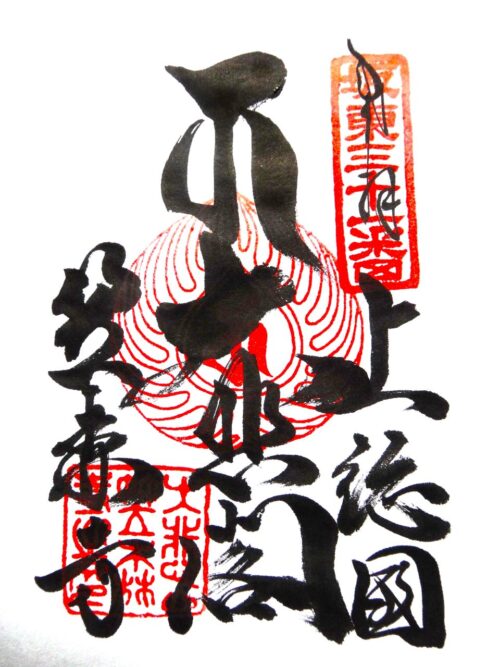 坂東三十一番
奉拝
上総國
大悲閣
笠森寺